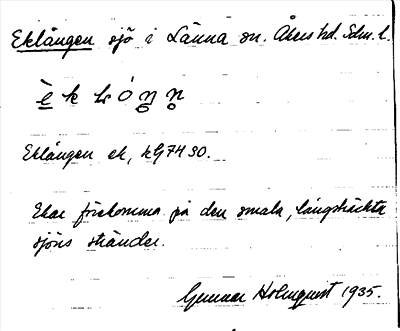 Eklången sjö i Länna sn. Åkers hd. Sdm. l.
Eklången ek, kG 7430.
Ekar förekomma på den smala, långsträckta
sjöns stränder.
Gunnar Holmquist 1935.